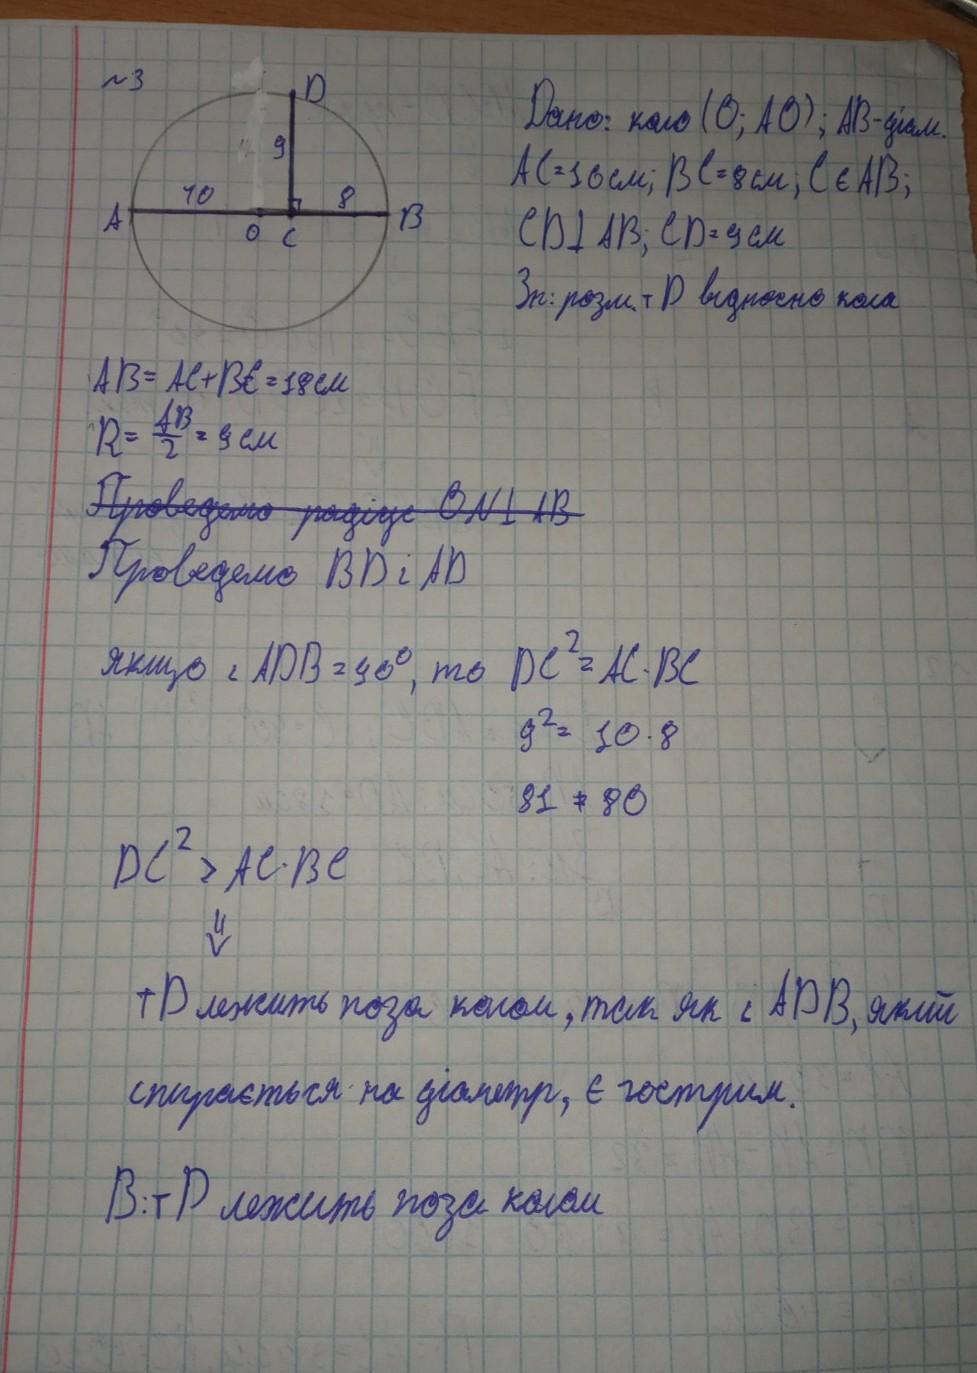 ~3
D
9
10
8
A
O
C
B
Дано: коло (O; AO); AB-діам.
AC=10см; BC=8см; C∈AB;
CD⊥AB; CD=9см
Зн: розм. т D відносно кола
AB= AC+BC=18см
R= AB/2 = 9см
Проведемо радіус ON⊥AB
Проведемо BD і AD
якщо ∠ADB=90°, то DC²=AC·BC
9²= 10·8
81 ≠ 80
DC² > AC·BC
⇓
т D лежить поза колом, так як ∠ADB, який
спирається на діаметр, є гострим.
В: т D лежить поза колом